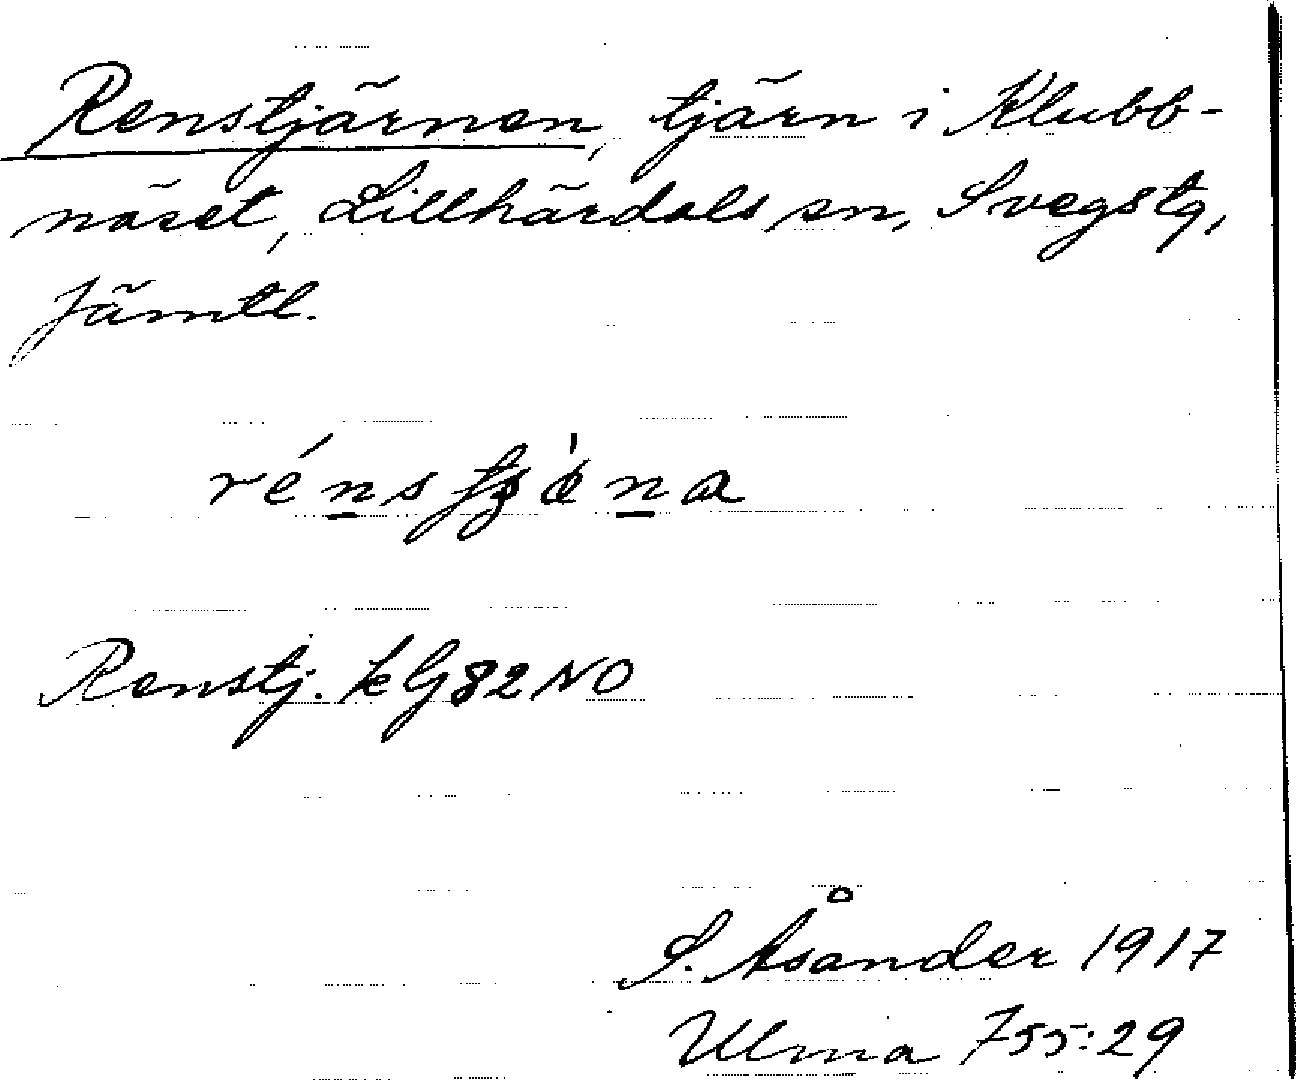 Renstjärnen, tjärn i Klubb-
näset, Lillhärdals sn, Svegs tg,
Jämtl.
Renstj. k G 82 NO
S. Åsander 1917
Ulma 755:29